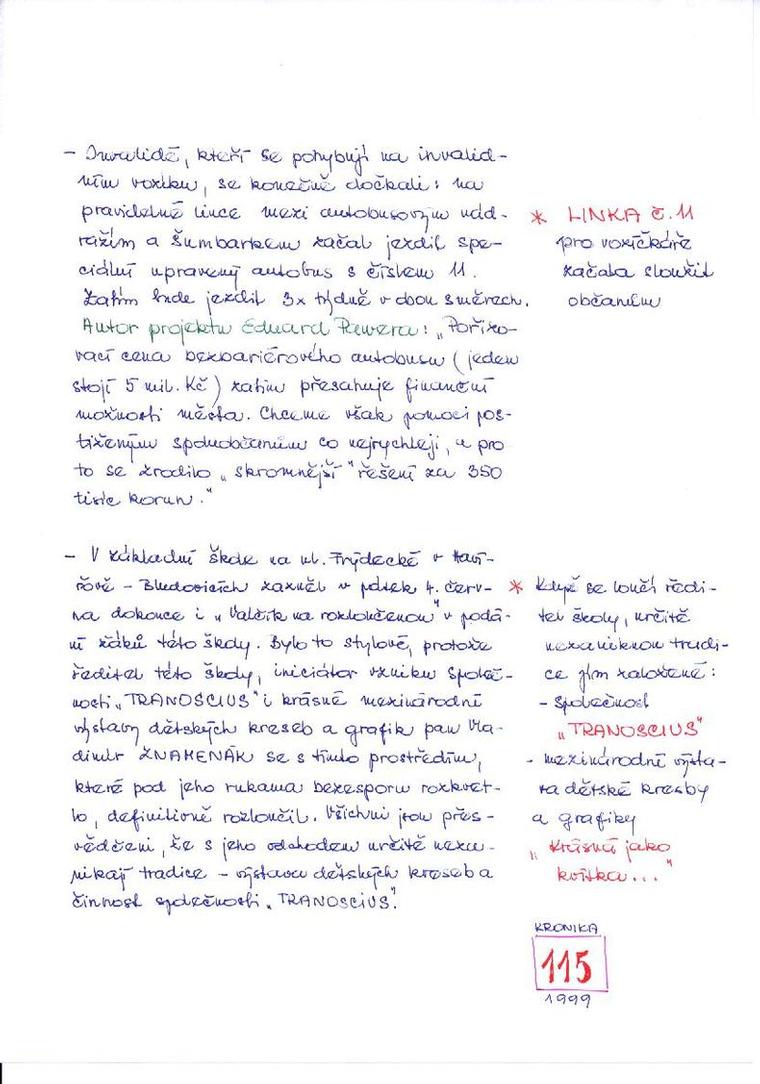 – Invalidé, kteří se pohybují na invalid-
ním vozíku, se konečně dočkali: na
pravidelné lince mezi autobusovým nád-
ražím a Šumbarkem začal jezdit spe-
ciální upravený autobus s číslem 11.
Zatím bude jezdit 3x týdně v obou směrech.
Autor projektu Eduard Pawera: „Pořizo-
vací cena bezbariérového autobusu (jeden
stojí 5 mil. Kč) zatím přesahuje finanční
možnosti města. Chceme však pomoci pos-
tiženým spoluobčanům co nejrychleji, a pro
to se zrodilo „skromnější" řešení za 350
tisíc korun."
* LINKA č. 11
pro vozíčkáře
začala sloužit
občanům
– V základní škole na ul. Frýdecké v Haví-
řově – Bludovicích zazněl v pátek 4. červ-
na dokonce i „Valčík na rozloučenou" v podá-
ní žáků této školy. Bylo to stylové, protože
ředitel této školy, iniciátor vzniku společ-
nosti „TRANOSCIUS" i krásné mezinárodní
výstavy dětských kreseb a grafik pan Vla-
dimír ZNAMENÁK se s tímto prostředím,
které pod jeho rukama bezesporu rozkvet-
lo, definitivně rozloučil. Všichni jsou přes-
vědčeni, že s jeho odchodem určitě neza-
nikají tradice – výstava dětských kreseb a
činnost společnosti „TRANOSCIUS".
* Když se loučí ředi-
tel školy, určitě
nezaniknou tradi-
ce jím založené:
– Společnost
„TRANOSCIUS"
– mezinárodní výsta-
va dětské kresby
a grafiky
„Krásná jako
kvítka..."
KRONIKA
115
1999